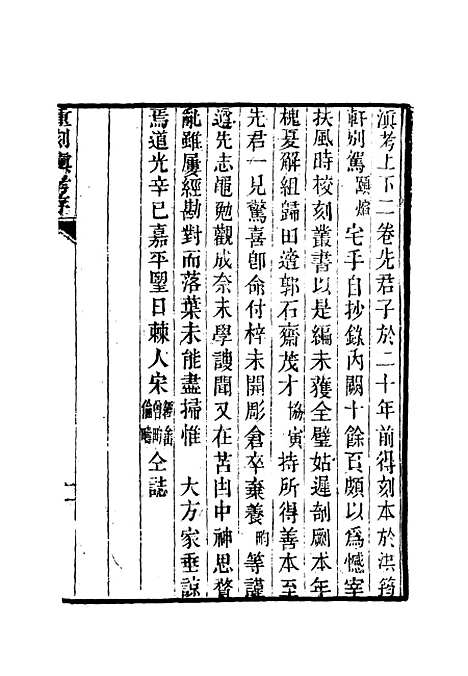 滇考上下二卷先君子於二十年前得刻本於洪筠
軒別駕頤煊宅手自抄錄內闕十餘頁頗以爲憾宰
扶風時校刻叢書以是編未獲全璧姑遲剞劂本年
槐夏解組歸田適郭石齋茂才協寅持所得善本至
先君一見驚喜卽命付梓未開彫倉卒棄養㽘等謹
遵先志黽勉觀成奈末學謏聞又在苫甴中神思瞀
亂雖屢經勘對而落葉未能盡掃惟 大方家垂諒
焉道光辛巳嘉平朢日棘人宋仝誌
重刻滇考序